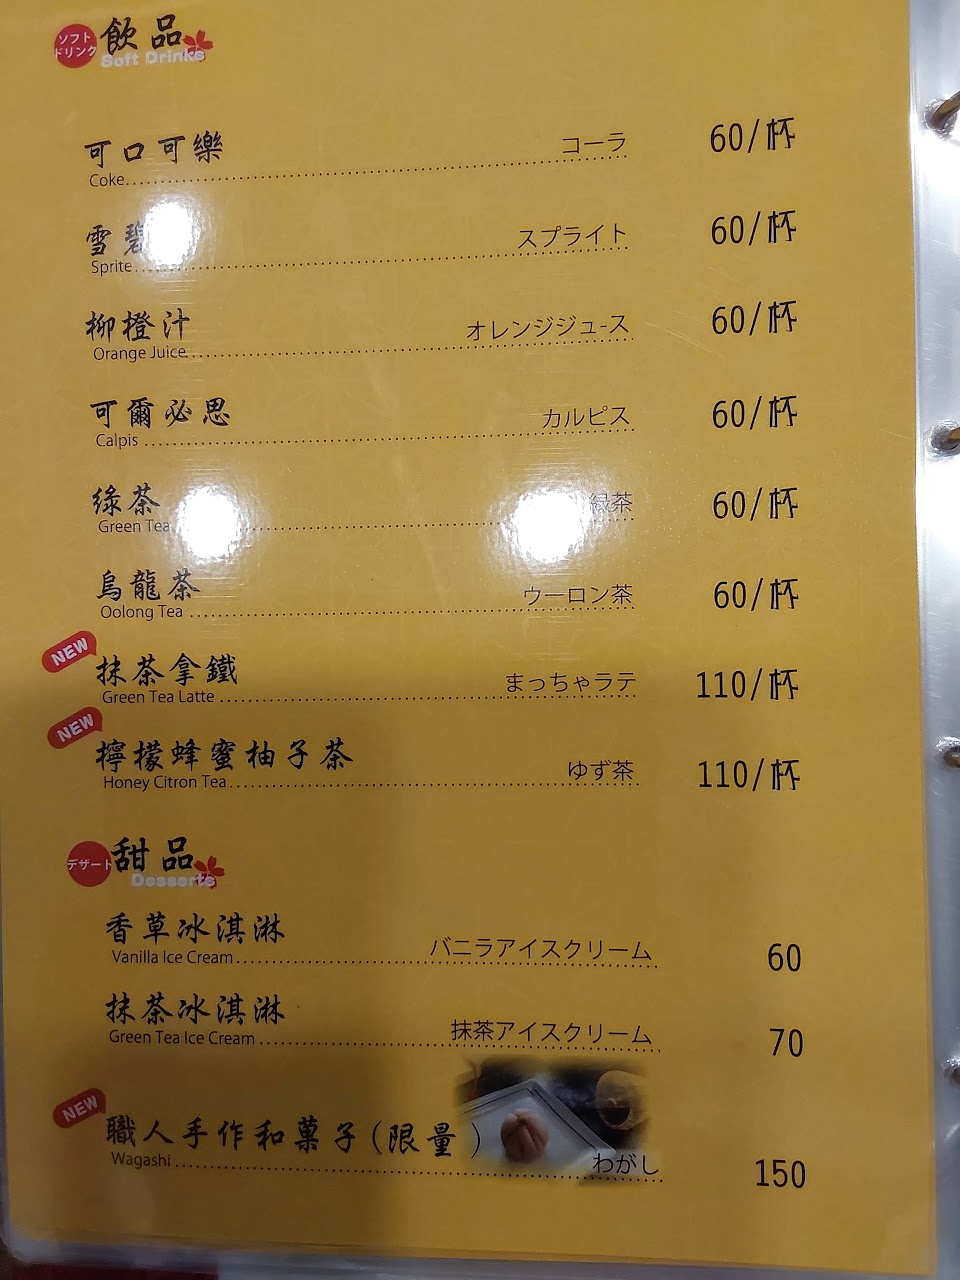 ソフト
ドリンク
飲品
Soft Drinks
可口可樂 コーラ 60/杯
Coke
雪碧 スプライト 60/杯
Sprite
柳橙汁 オレンジジュ-ス 60/杯
Orange Juice
可爾必思 カルピス 60/杯
Calpis
綠茶 緑茶 60/杯
Green Tea
烏龍茶 ウーロン茶 60/杯
Oolong Tea
NEW
抹茶拿鐵 まっちゃラテ 110/杯
Green Tea Latte
NEW
檸檬蜂蜜柚子茶 ゆず茶 110/杯
Honey Citron Tea
デザート
甜品
Desserts
香草冰淇淋 バニラアイスクリーム 60
Vanilla Ice Cream
抹茶冰淇淋 抹茶アイスクリーム 70
Green Tea Ice Cream
NEW
職人手作和菓子(限量) わがし 150
Wagashi